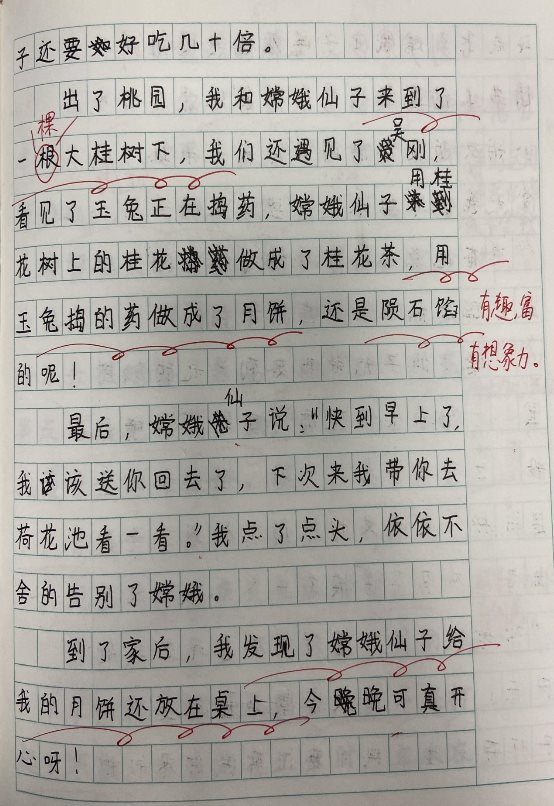 子还要好吃几十倍。
出了桃园，我和嫦娥仙子来到了
棵
一根大桂树下，我们还遇见了吴刚，
看见了玉兔正在捣药，嫦娥仙子用桂
花树上的桂花做成了桂花茶，用
玉兔捣的药做成了月饼，还是陨石馅
的呢！
有趣富
有想象力。
最后，嫦娥仙子说："快到早上了，
我该送你回去了，下次来我带你去
荷花池看一看。"我点了点头，依依不
舍的告别了嫦娥。
到了家后，我发现了嫦娥仙子给
我的月饼还放在桌上，今晚可真开
心呀！